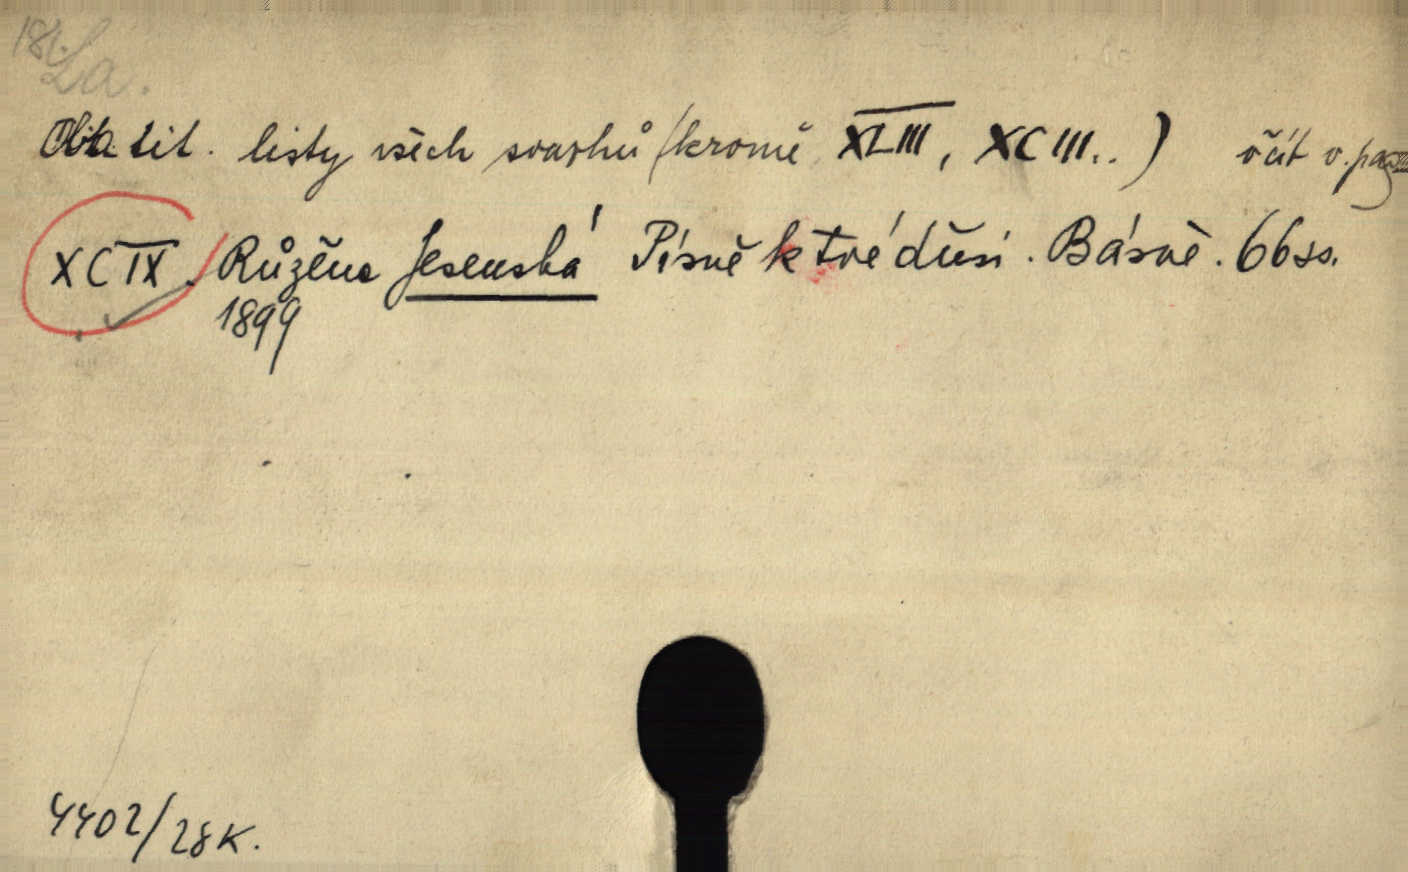 La.
Oba tit. listy všech svazků (kromě XLIII, XCIII..) včít. v. pag
XCIX. Růžena Jesenská Písně k tvé duši. Básně. 66 ss.
1899
4402/28K.